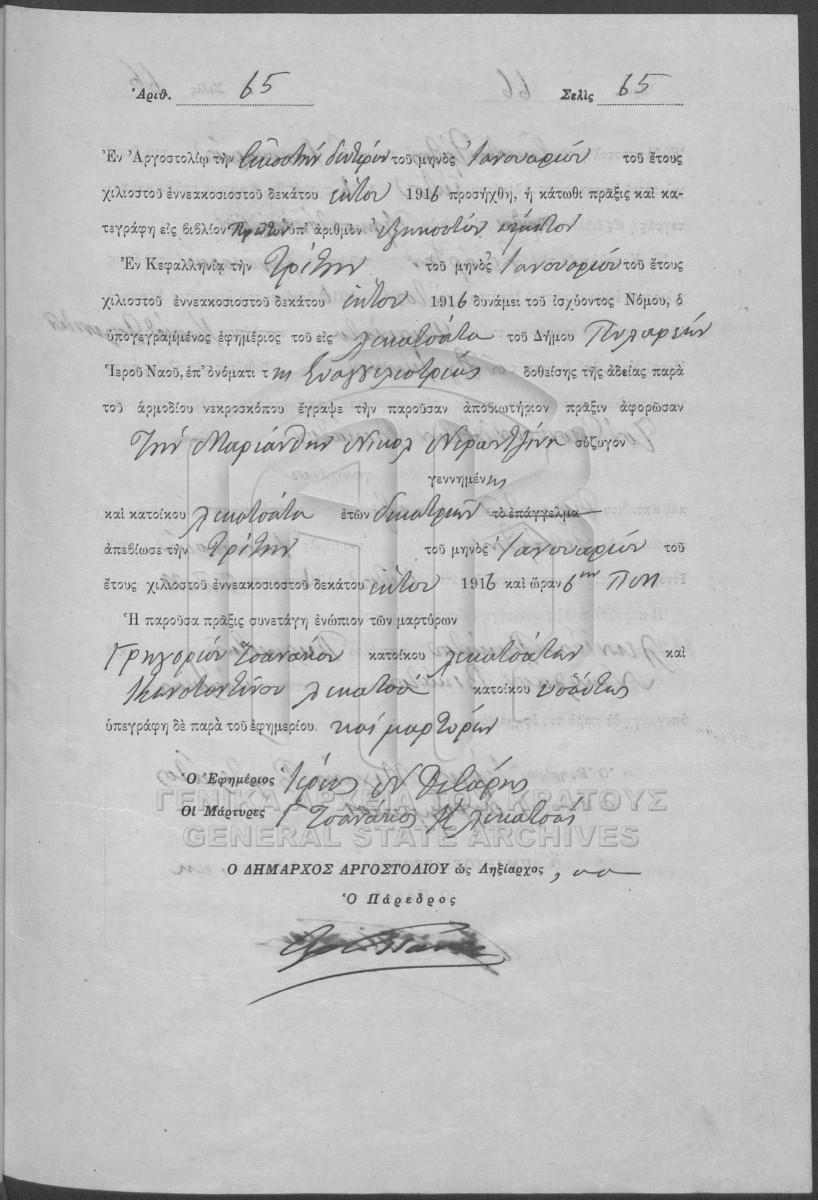 Ἀριθ. 65 Σελὶς 65
Ἐν Ἀργοστολίῳ τὴν Εἰκοστὴν δευτέραν τοῦ μηνὸς Ἰανουαρίου τοῦ ἔτους
χιλιοστοῦ ἐννεακοσιοστοῦ δεκάτου ἕκτου 1916 προσήχθη, ἡ κάτωθι πρᾶξις καὶ κα-
τεγράφη εἰς βιβλίον πρῶτον ὑπ' ἀριθμὸν ἑξηκοστὸν πέμπτον
Ἐν Κεφαλληνίᾳ τὴν Τρίτην τοῦ μηνὸς Ἰανουαρίου τοῦ ἔτους
χιλιοστοῦ ἐννεακοσιοστοῦ δεκάτου ἕκτου 1916 δυνάμει τοῦ ἰσχύοντος Νόμου, ὁ
ὑπογεγραμμένος ἐφημέριος τοῦ εἰς Λεκατσάτα τοῦ Δήμου Πυλαρέων
Ἱεροῦ Ναοῦ, ἐπ' ὀνόματι τ ης Εὐαγγελιστρίας δοθείσης τῆς ἀδείας παρὰ
τοῦ ἁρμοδίου νεκροσκόπου ἔγραψε τὴν παροῦσαν ἀποβιωτήριον πρᾶξιν ἀφορῶσαν
Τὴν Μαριάνθην Νικολ Νεραντζίνη σύζυγον
γεννημένης
καὶ κατοίκου Λεκατσάτα ἐτῶν δεκατριῶν τὸ ἐπάγγελμα
ἀπεβίωσε τὴν Τρίτην τοῦ μηνὸς Ἰανουαρίου τοῦ
ἔτους χιλιοστοῦ ἐννεακοσιοστοῦ δεκάτου ἕκτου 1916 καὶ ὥραν 6ην Π
Ἡ παροῦσα πρᾶξις συνετάγη ἐνώπιον τῶν μαρτύρων
Γρηγορίου Τσανάκου κατοίκου Λεκατσάτων καὶ
Κωνσταντίνου Λεκατσᾶ κατοίκου ὡσαύτως
ὑπεγράφη δὲ παρὰ τοῦ ἐφημερίου. καὶ μαρτύρων
Ὁ Ἐφημέριος Ἱερεὺς Ν
Οἱ Μάρτυρες Γ Τσανάκος Κ Λεκατσάς
ΓΕΝΙΚΑ ΑΡΧΕΙΑ ΤΟΥ ΚΡΑΤΟΥΣ
GENERAL STATE ARCHIVES
Ο ΔΗΜΑΡΧΟΣ ΑΡΓΟΣΤΟΛΙΟΥ ὡς Ληξίαρχος
Ὁ Πάρεδρος